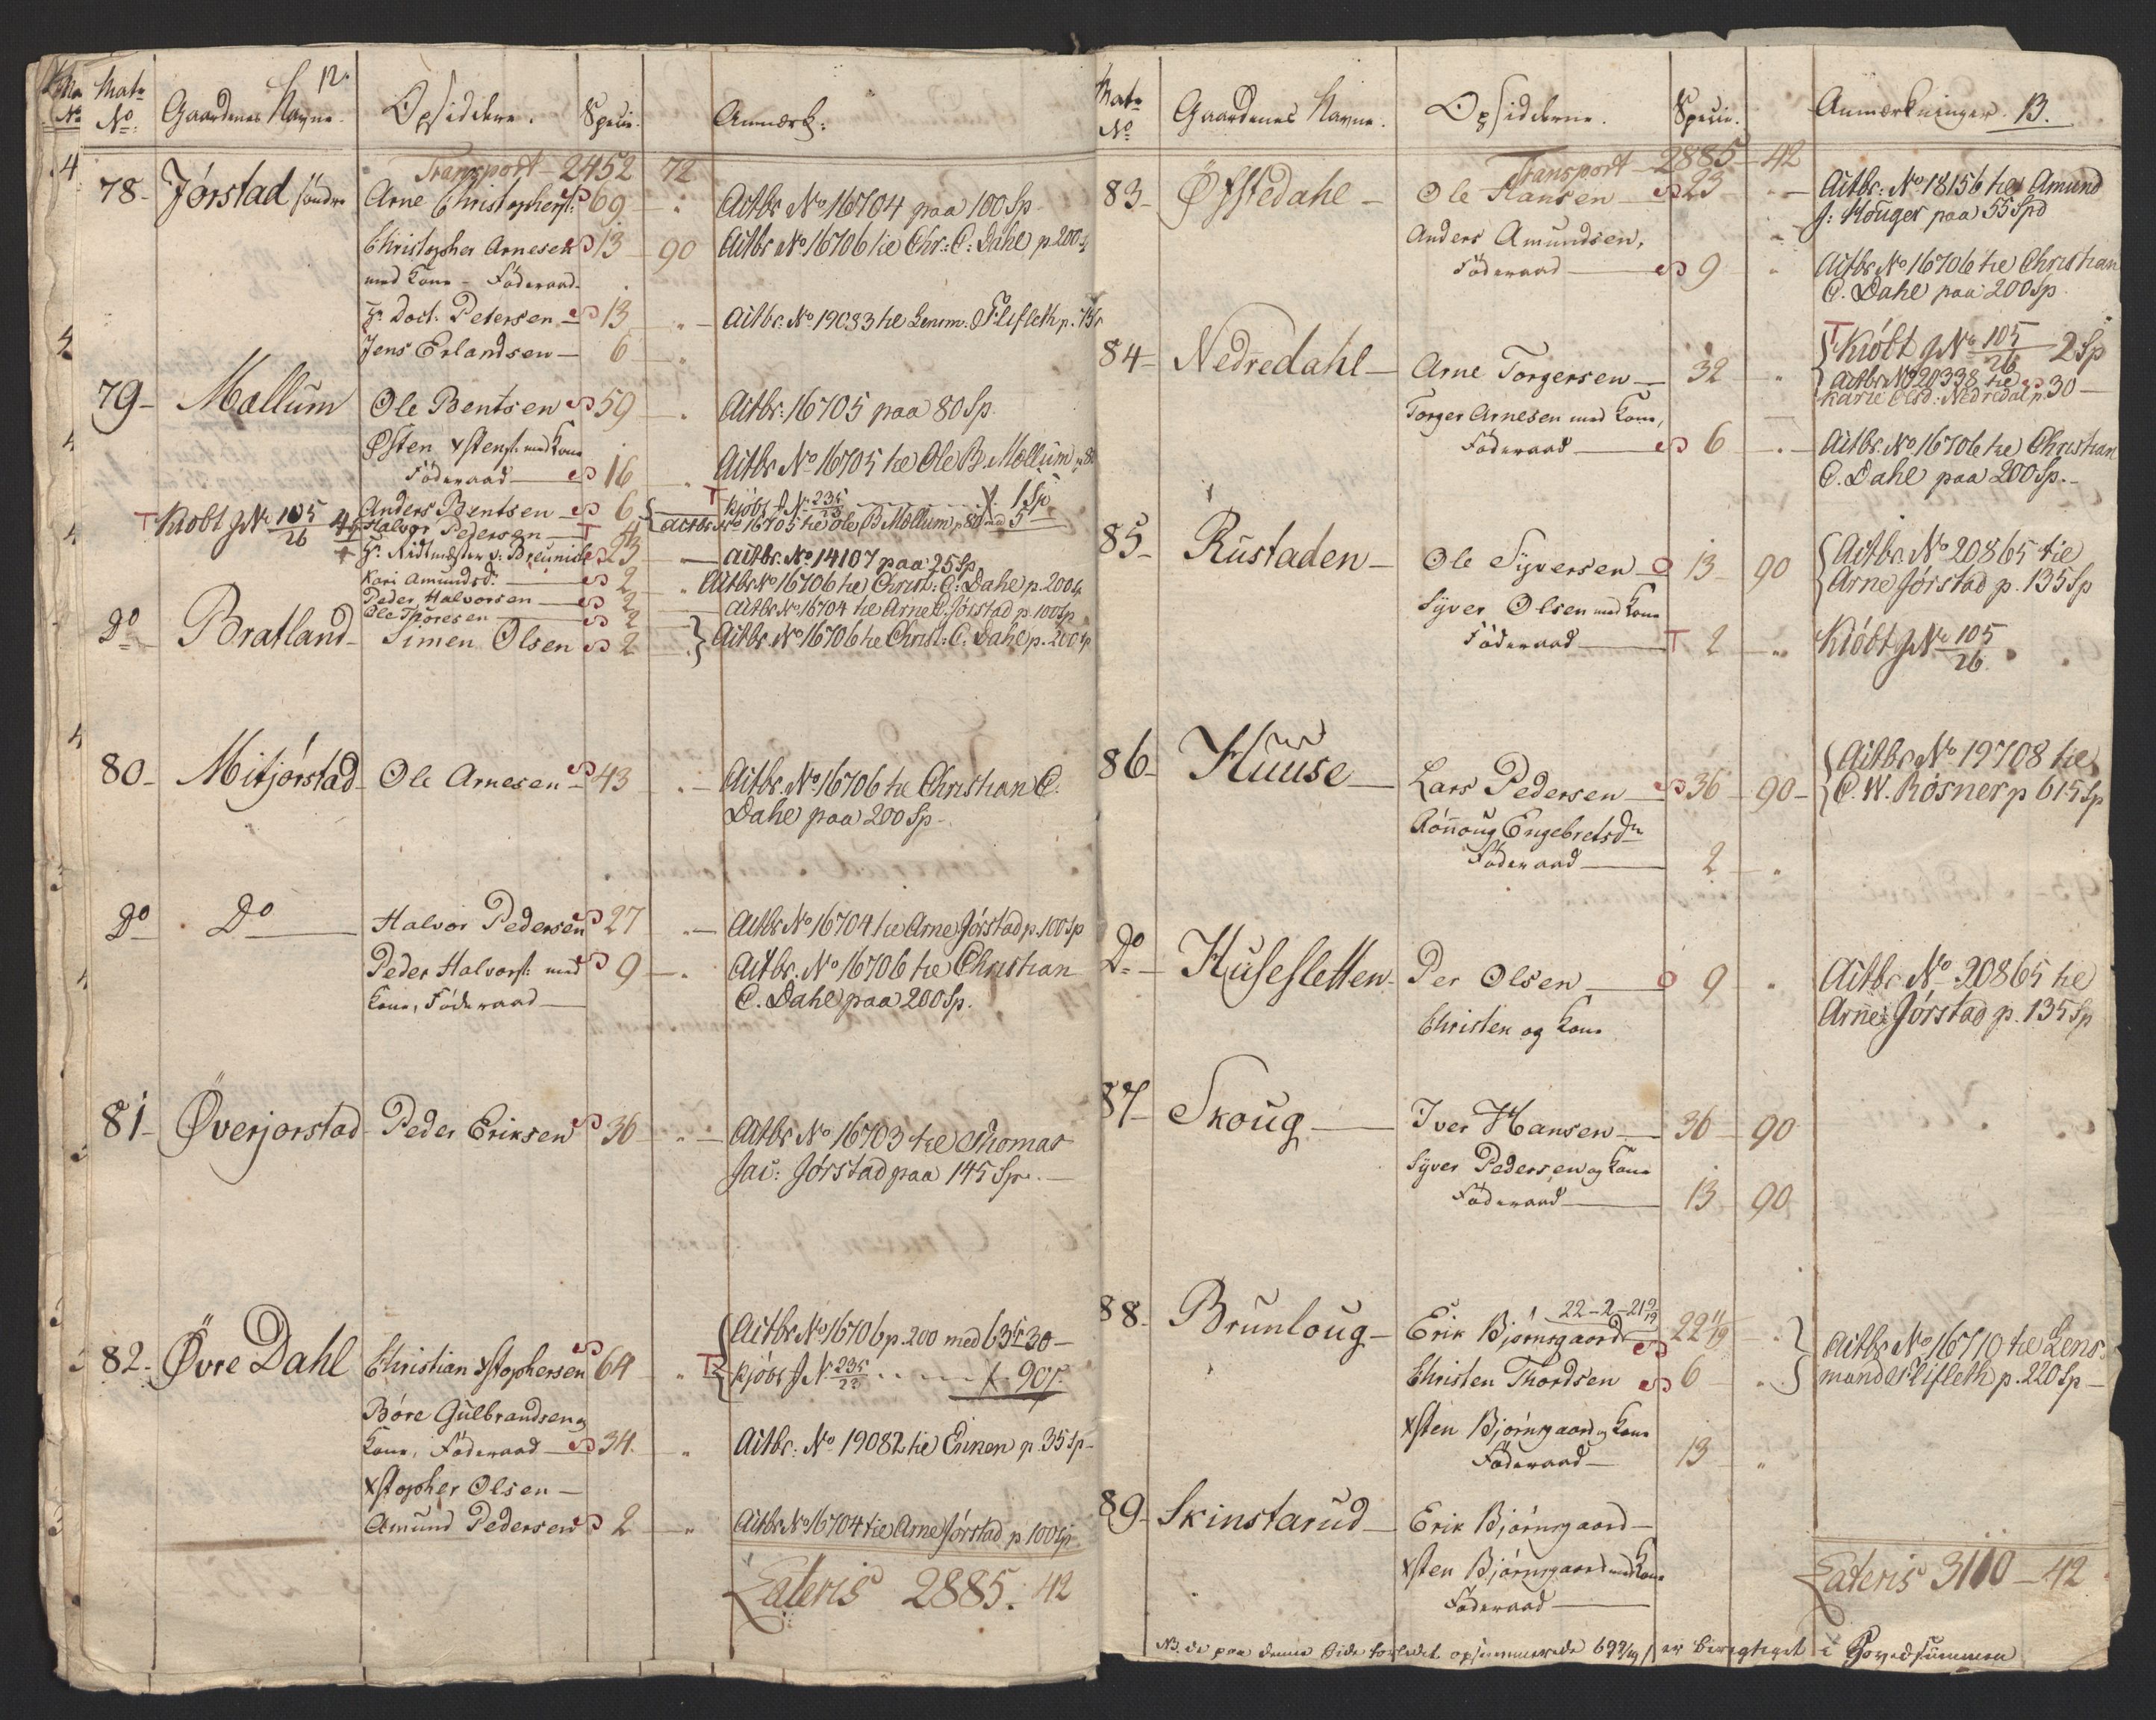 12.
Mat: No Gaardenes Navne. Opsidderne. Specie. Anmærk:
Transport 2452 72
78 Jórstad søndre Arne Christophers: 69 Actbr No 16704 paa 100 Sp
Christopher Arnesen 13 90 Actbr No 16706 til Chr: C: Dahl p. 200 Sp
med Kone - Föderaad
Hr Doct: Petersen 13 Actbr: No 19083 til Lensm: Flifleth p.
Jens Erlandsen 6
79 Mællum Ole Bentsen 59 Actbr: 16705 paa 80 Sp.
Østen Xstens: med Kone
Föderaad 16 Actbr No 16705 til Ole B. Mællum p 80
Anders Bentsen 6 Kjóbt J No 235/23 1 Sp
Actbr No 16705 til Ole B Mællum p 80 med 5
T Kióbt J No 105/26 Halvor Pedersen T 4
Hr. Ridtmester v: Breunich 23 Actbr. No 14107 paa 25 Sp
Kari Amundsd: 2 Actbr No 16706 til Christ: C: Dahl p. 200 Sp
Peder Halvorsen 2 Actbr No 16704 til Arne C. Jórstad p. 100 Sp
Ole Thoresen 2
Do Bratland Simen Olsen 2 Actbr No 16706 til Christ: C. Dahl p. 200 Sp
80 Mitjórstad Ole Arnesen 43 Actbr. No 16706 til Christian C.
Dahl paa 200 Sp.
Do Do Halvor Pedersen 27 Actbr No 16704 til Arne Jórstad p. 100 Sp
Peder Halvors: med 9 Actbr. No 16706 til Christian
Kone, Föderaad C. Dahl paa 200 Sp.
81 Överjorstad Peder Eriksen 36 Actbr No 16703 til Thomas
Jac: Jórstad paa 145 Sp.
82 Övre Dahl Christian Xstophersen 64 Actbr No 16706 p. 200 med 63 30
T Kjóbt J No 235/23 90
Bóre Gulbrandsen og
Kone, Föderaad 34. Actbr: No 19082 til Einen p. 35 Sp
Xstopher Olsen
Amund Pedersen 2 Actbr No 16704 til Arne Jórstad p 100 Sp.
Lateris 2885. 42
Mat: No Gaardenes Navne. Opsidderne. Specie. Anmærkninger. 13.
Transport 2885 42
83 Öfstedahl Ole Hansen 23 Actbr: No 18156 til Amund
J: Houger paa 55 Spd
Anders Amundsen,
Föderaad 9 Actbr No 16706 til Christian
C. Dahl paa 200 Sp.
84 Nedredahl Arne Torgersen 32 T Kióbt J No 105/26 2 Sp
Actbr No 20338 til
Karie Olsd: Nedredal p. 30
Torger Arnesen med Kone,
Föderaad 6 Actbr. No 16706 til Christian
C. Dahl paa 200 Sp.
85 Rustaden Ole Syversen 13 90 Actbr. No 20865 til
Arne Jórstad p. 135 Sp
Syver Olsen med Kone
Föderaad T 2 Kióbt J No 105/26
86 Huuse Lars Pedersen 36 90 Actbr No 19708 til
C. W. Rósner p 615 Sp
Rónnoug Engebretsdr
Föderaad 2
Do Husesletten Per Olsen 9 Actbr No 20865 til
Arne Jórstad p. 135 Sp
Christen og Kone
87 Skoug Iver Hansen 36 90
Syver Pedersen og Kone
Föderaad 13 90
22-2-21 9/19
88 Brunloug Erik Bjórnsgaard 22 11/19 Actbr No 16710 til Lens
Christen Thordsen 6 mand Flifleth p. 220 Sp
Xsten Bjórnsgaard og Kone
Föderaad 13
89 Skinstarud Erik Bjórnsgaard
Xsten Bjórnsgaard med Kone
Föderaad
Lateris 3110 42
NB. de paa denne Side opsummerede er beregtiget i Hovedsummen